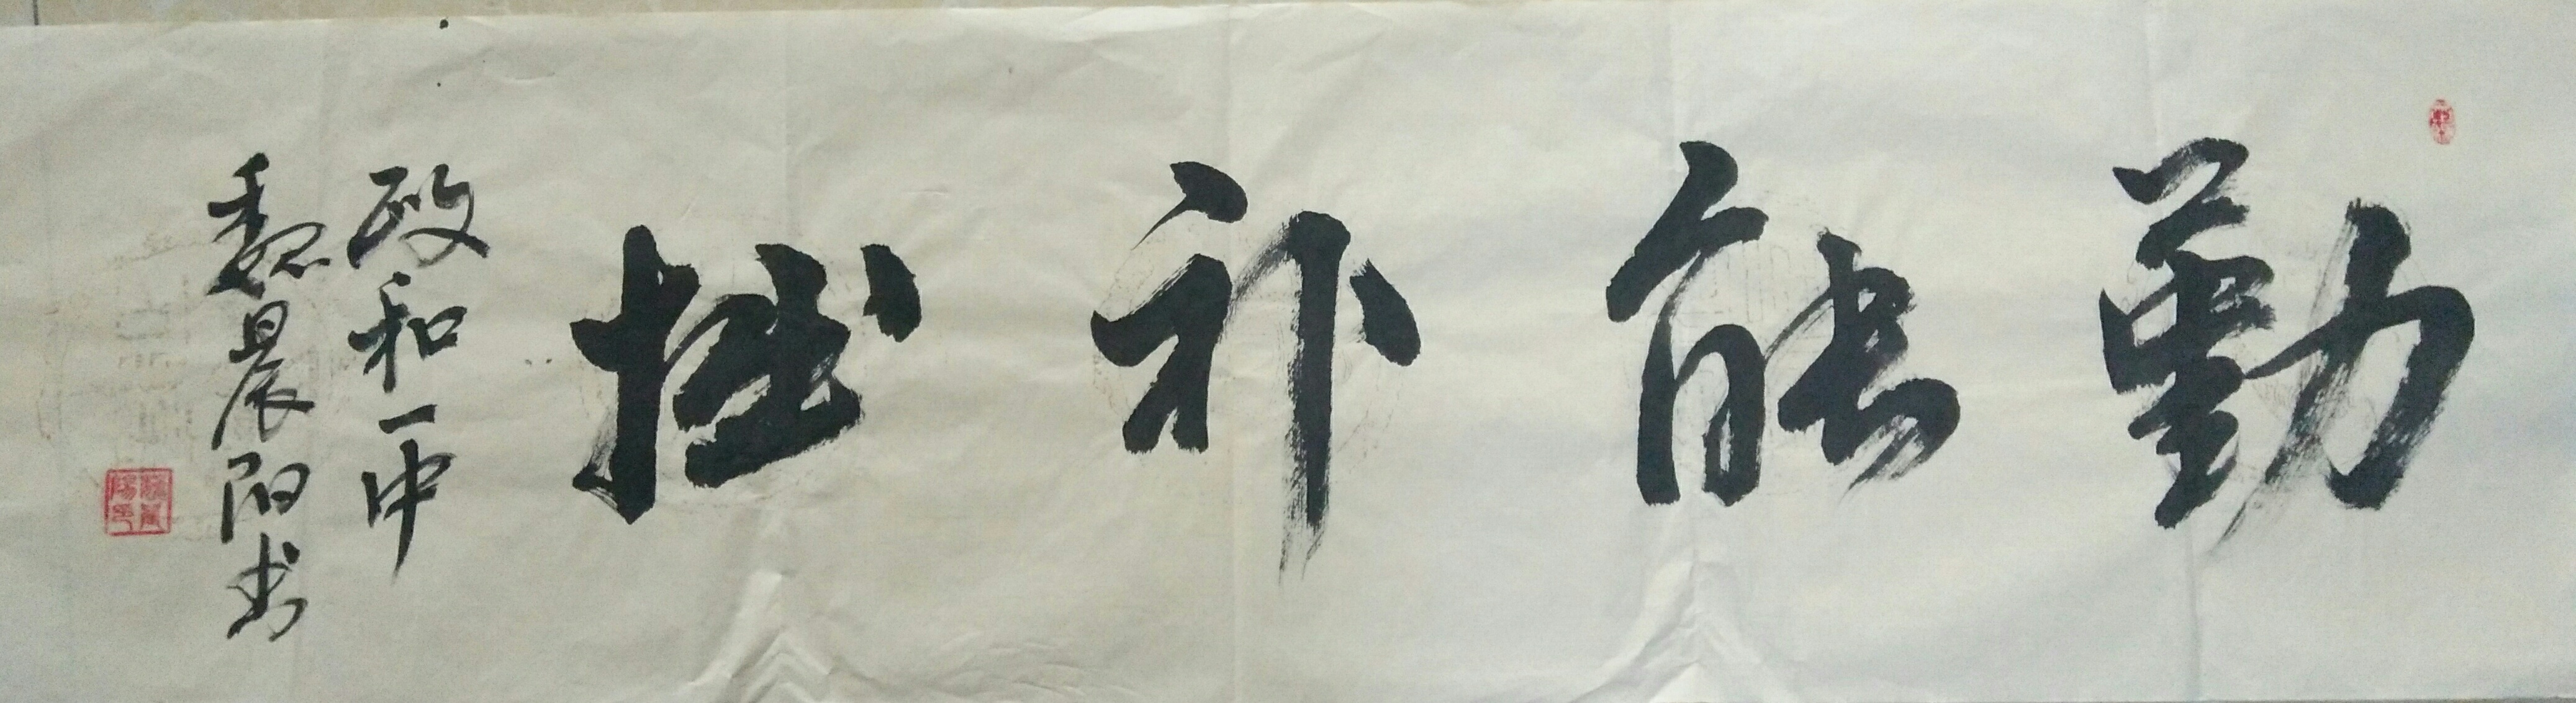 勤能补拙
政和一中
魏晨阳书